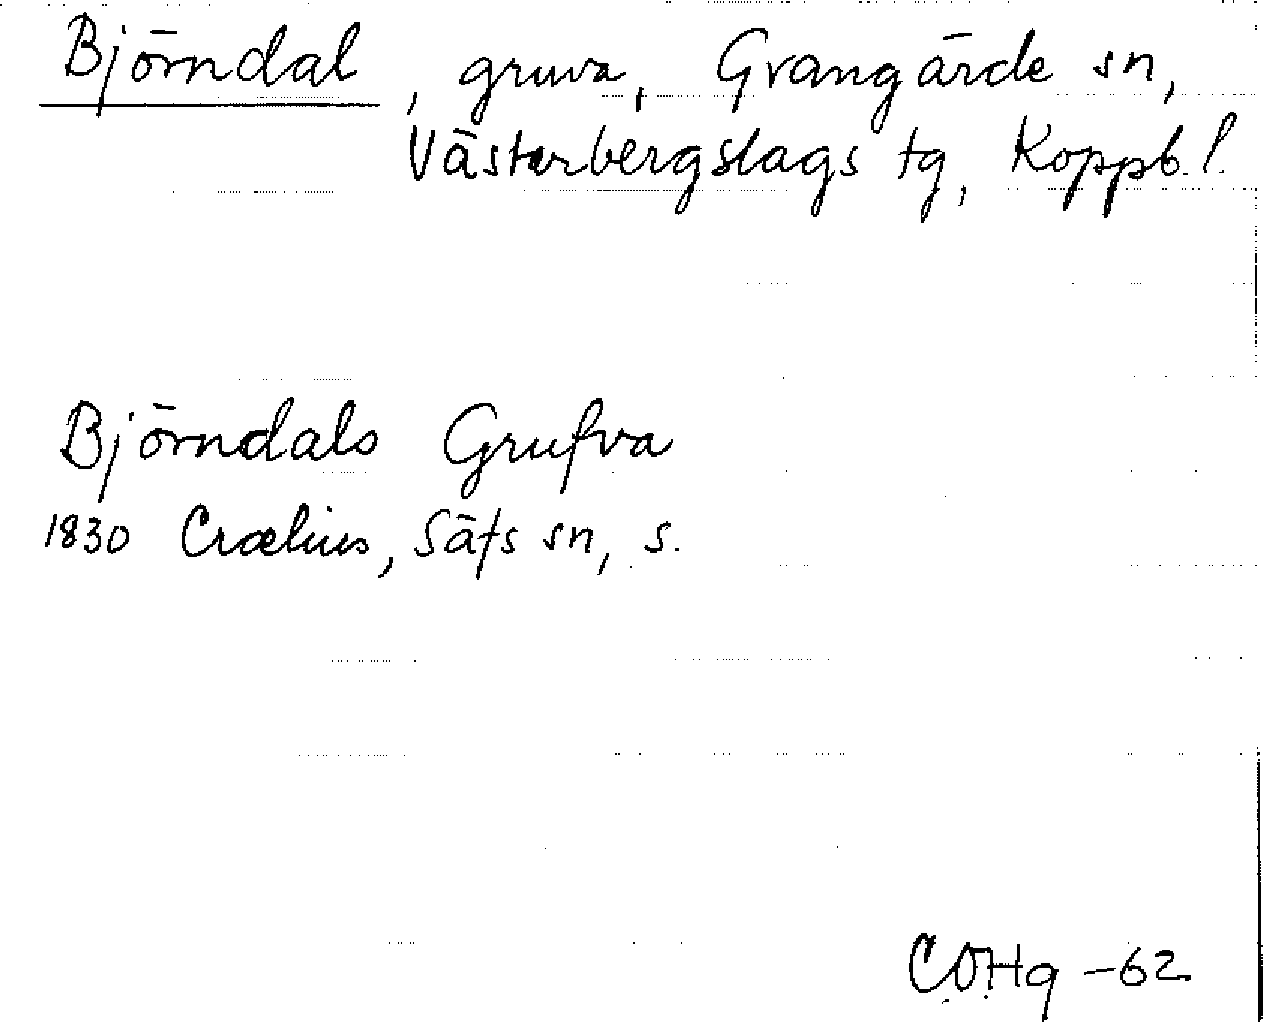 Björndal, gruva, Grangärde sn,
Västerbergslags tg, Koppb. l.
Björndals Grufva
1830 Crælius, Säfs sn, s.
COHg -62